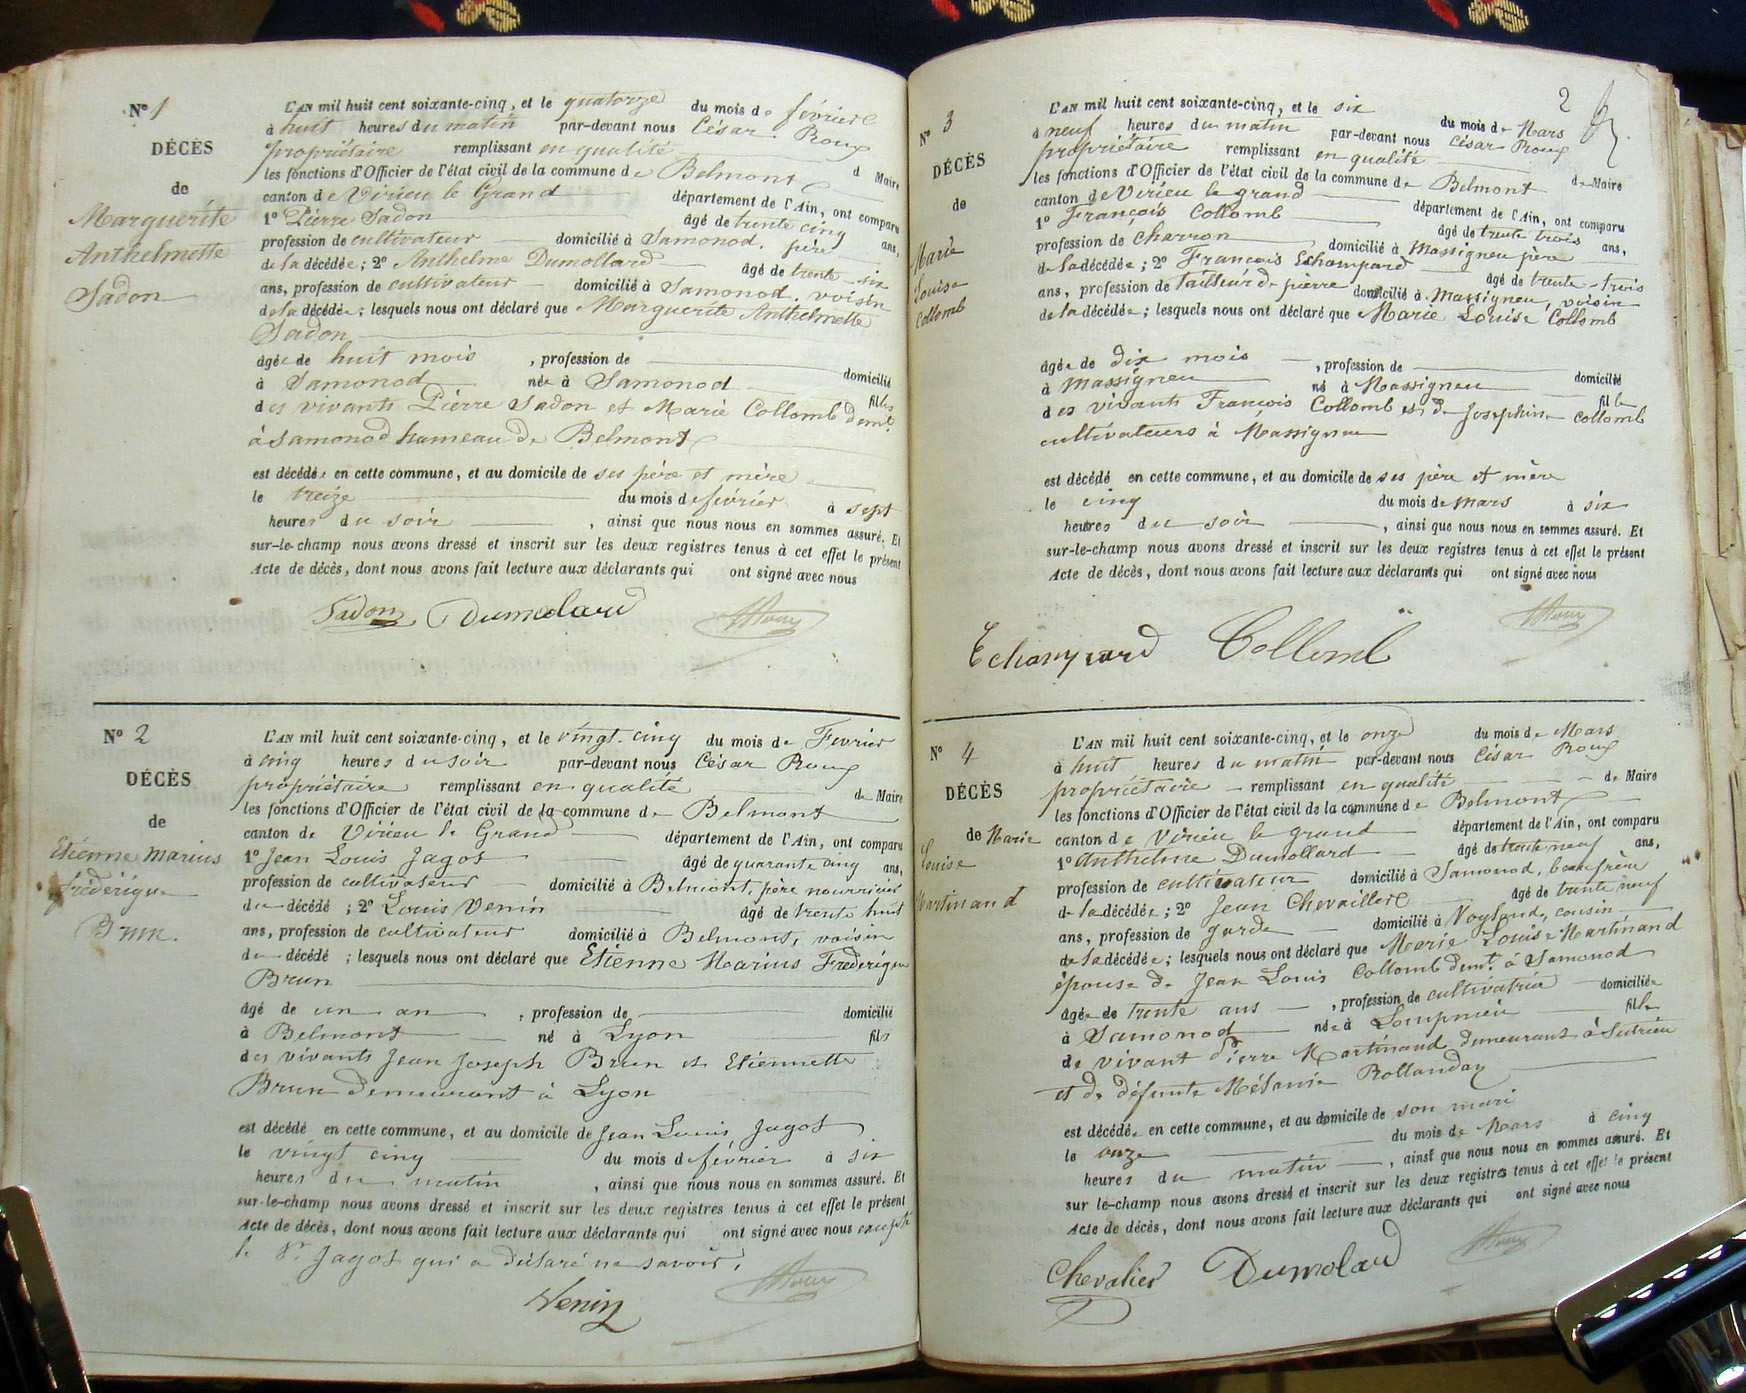 N° 1
DÉCÈS
de
Marguerite
Anthelmette
Sadon
L'AN mil huit cent soixante-cinq, et le quatorze du mois de février
à huit heures du matin par-devant nous César Roux
propriétaire remplissant en qualité d Maire
les fonctions d'Officier de l'état civil de la commune de Belmont
canton de Virieu le Grand département de l'Ain, ont comparu
1° Pierre Sadon âgé de trente cinq ans,
profession de cultivateur domicilié à Samonod, père
de la décédée ; 2° Anthelme Dumollard âgé de trente-six
ans, profession de cultivateur domicilié à Samonod, voisin
de la décédée ; lesquels nous ont déclaré que Marguerite Anthelmette
Sadon
âgée de huit mois , profession de domicilié
à Samonod née à Samonod filles
des vivants Pierre Sadon et Marie Collomb demt
à Samonod hameau de Belmont
est décédée en cette commune, et au domicile de ses père et mère
le treize du mois de février à sept
heures du soir , ainsi que nous nous en sommes assuré. Et
sur-le-champ nous avons dressé et inscrit sur les deux registres tenus à cet effet le présent
Acte de décès, dont nous avons fait lecture aux déclarants qui ont signé avec nous
Sadon Dumolard Roux
N° 2
DÉCÈS
de
Etienne Marius
frédérique
Brun.
L'AN mil huit cent soixante-cinq, et le vingt-cinq du mois de Février
à cinq heures du soir par-devant nous César Roux
propriétaire remplissant en qualité de Maire
les fonctions d'Officier de l'état civil de la commune de Belmont
canton de Virieu le Grand département de l'Ain, ont comparu
1° Jean Louis Jagot âgé de quarante cinq ans,
profession de cultivateur domicilié à Belmont, père nourricier
du décédé ; 2° Louis Venin âgé de trente huit
ans, profession de cultivateur domicilié à Belmont, voisin
du décédé ; lesquels nous ont déclaré que Etienne Marius Frédérique
Brun
âgé de un an , profession de domicilié
à Belmont né à Lyon fils
des vivants Jean Joseph Brun et Etiennette
Brun demeurant à Lyon
est décédé en cette commune, et au domicile de Jean Louis Jagot
le vingt cinq du mois de février à six
heures du matin , ainsi que nous nous en sommes assuré. Et
sur-le-champ nous avons dressé et inscrit sur les deux registres tenus à cet effet le présent
Acte de décès, dont nous avons fait lecture aux déclarants qui ont signé avec nous excepté
le Sr Jagot qui a déclaré ne savoir.
Venin Roux
2
N° 3
DÉCÈS
de
Marie
Louise
Collomb
L'AN mil huit cent soixante-cinq, et le six du mois de Mars
à neuf heures du matin par-devant nous César Roux
propriétaire remplissant en qualité de Maire
les fonctions d'Officier de l'état civil de la commune de Belmont
canton de Virieu le grand département de l'Ain, ont comparu
1° François Collomb âgé de trente trois ans,
profession de charron domicilié à Massigneu père
de la décédée ; 2° François Echampard âgé de trente-trois
ans, profession de tailleur de pierre domicilié à Massigneu, voisin
de la décédée ; lesquels nous ont déclaré que Marie Louise Collomb
âgée de dix mois , profession de domicilié
à Massigneu né à Massigneu fille
des vivants François Collomb et de Josephine Collomb
cultivateurs à Massigneu
est décédé en cette commune, et au domicile de ses père et mère
le cinq du mois de mars à six
heures du soir , ainsi que nous nous en sommes assuré. Et
sur-le-champ nous avons dressé et inscrit sur les deux registres tenus à cet effet le présent
Acte de décès, dont nous avons fait lecture aux déclarants qui ont signé avec nous
Roux
Echampard Collomb
N° 4
DÉCÈS
de Marie
Louise
Martinand
L'AN mil huit cent soixante-cinq, et le onze du mois de Mars
à huit heures du matin par-devant nous César Roux
propriétaire remplissant en qualité de Maire
les fonctions d'Officier de l'état civil de la commune de Belmont
canton de Virieu le grand département de l'Ain, ont comparu
1° Anthelme Dumollard âgé de trente neuf ans,
profession de cultivateur domicilié à Samonod, beau frère
de la décédée ; 2° Jean Chevaillier âgé de trente neuf
ans, profession de garde domicilié à cousin
de la décédée ; lesquels nous ont déclaré que Marie Louise Martinand
épouse de Jean Louis Collomb demt à Samonod
âgée de trente ans , profession de cultivatrice domiciliée
à Samonod née à Lompnieu fille
de vivant Pierre Martinand demeurant à Sutrieu
et de défunte Mélanie Rollanday
est décédée en cette commune, et au domicile de son mari
le onze du mois de Mars à cinq
heures du matin , ainsi que nous nous en sommes assuré. Et
sur-le-champ nous avons dressé et inscrit sur les deux registres tenus à cet effet le présent
Acte de décès, dont nous avons fait lecture aux déclarants qui ont signé avec nous
Chevalier Dumolard Roux